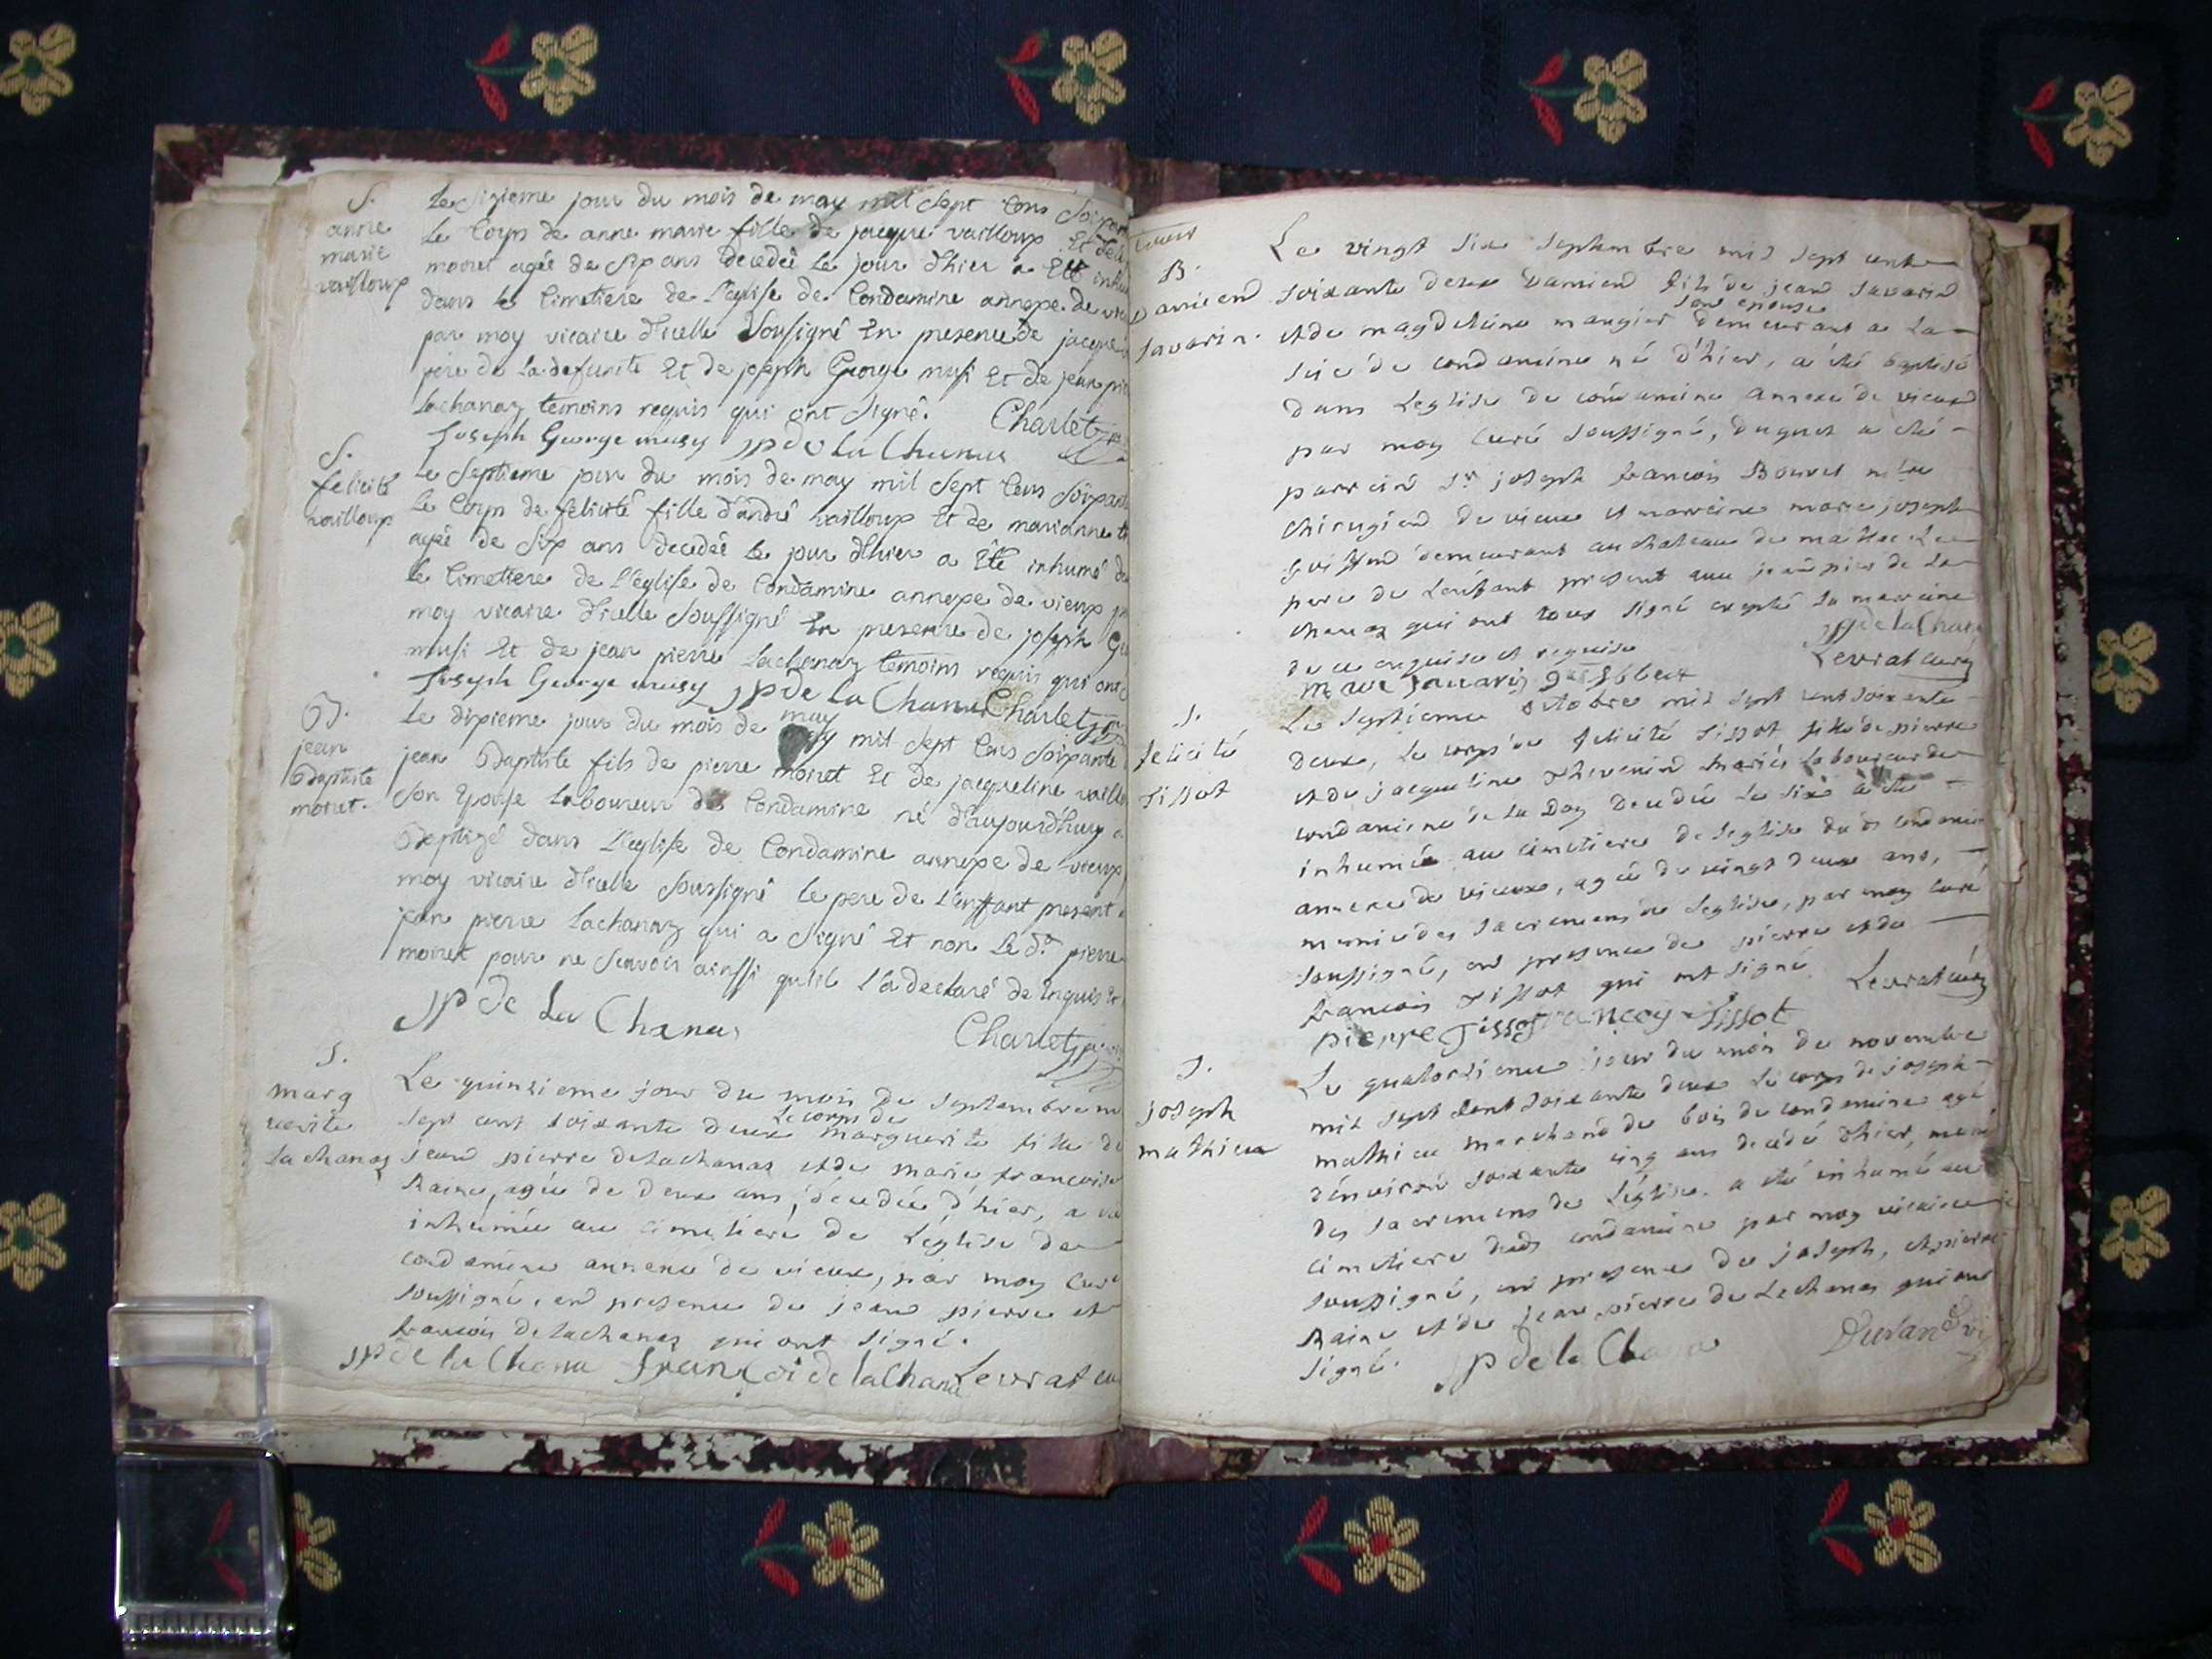 S.
anne
marie
vailloup
Le sixieme jour du mois de may mil sept cens soixan
Le Corps de anne marie fille de jacque vailloup Et de
moiret agée de six ans decedée Le jour d'hier a Eté inhu
dans le Cimetiere de l'eglise de Condamine annexe de vie
par moy vicaire d'icelle Sousigné En presence de jacque
pere de La defunte Et de joseph George musi Et de jean pi
Lachanaz temoins requis qui ont signé. Charlet
Joseph George musy JP de La Chanas
S.
felicité
vailloup
Le Septieme jour du mois de may mil sept Cens soixant
Le Corps de felicité fille d'andré vailloup Et de marianne
agée de six ans decedée Le jour d'hier a Eté inhumé d
le Cimetiere de L'eglise de Condamine annexe de vieux p
moy vicaire d'icelle soussigné En presence de joseph Ge
musi Et de jean pierre Lachanaz temoins requis qui ont
Joseph George musy JP de la Chanas Charlet
B.
jean
Baptiste
moiret.
Le dixieme jour du mois de may mil sept Cens soixante
jean Baptiste fils de pierre moiret Et de jacqueline vaill
son Epouse Laboureur de Condamine né d'aujourdhuy a
Baptizé dans L'eglise de Condamine annexe de vieux
moy vicaire d'icelle soussigné Le pere de L'enffant present
jean pierre Lachanaz qui a signé Et non Le dt pierre
moiret pour ne scavoir ainssi qu'il L'a declaré de Enquis
JP de La Chanas
Charlet
S.
marg
uerite
Lachanaz
Le quinzieme jour du mois de septembre m
le corps de
sept cent soixante deux marguerite fille de
jean pierre delachanas et de marie francoise
Raine, agée de deux ans, decedée d'hier, a été
inhumée au cimetiere de L'église de
condamine annexe de vieux, par moy Curé
soussigné, en presence de jean pierre et
francois delachanaz qui ont signé.
JP de la Chana francoi de la Chana Levrat cu
B.
Damien
Savarin.
Le vingt six septembre mil sept cent
soixante deux Damien fils de jean savarin
son epouse
et de magdeleine mangier demeurant a La
scie de condamine né d'hier, a été baptisé
dans L'eglise de condamine annexe de vieux
par moy Curé soussigné, duquel a été
parrein Sr joseph francois Bouvet mtre
chirugien de vieux et marreine marie joseph
demeurant au chateau de
pere de L'enfant present avec jean pier de La
chanaz qui ont tous signé excepté La marreine
de ce enquise et requise JP de la Chan
Levrat curé
S.
felicité
Tissot
Le septieme octobre mil sept cent soixante
deux, Le corps de felicité Tissot fille de pierre
et de jacqueline Thevenin mariés Laboureur de
condamine de La Doy decedée Le six a été
inhumée au cimetiere de l'eglise dud condamine
annexe de vieux, agée de vingt deux ans,
munie des sacremens de L'eglise, par moy curé
soussigné, en presence de pierre et de
francois Tissot qui ont signé. Levrat curé
pierre Tissot francoy Tissot
S.
joseph
mathieu
Le quatorzieme jour du mois de novembre
mil sept cent soixante deux Le corps de joseph
mathieu marchand de bois de condamine agé
d'environ soixante cinq ans decedé d'hier, muni
des sacremens de L'église. a été inhumé au
cimetiere dudt condamine par moy vicaire
soussigné, en presence de joseph, et pierre
Raine et de jean pierre de Lachanas qui ont
signé. JP de la Chana Duran vi